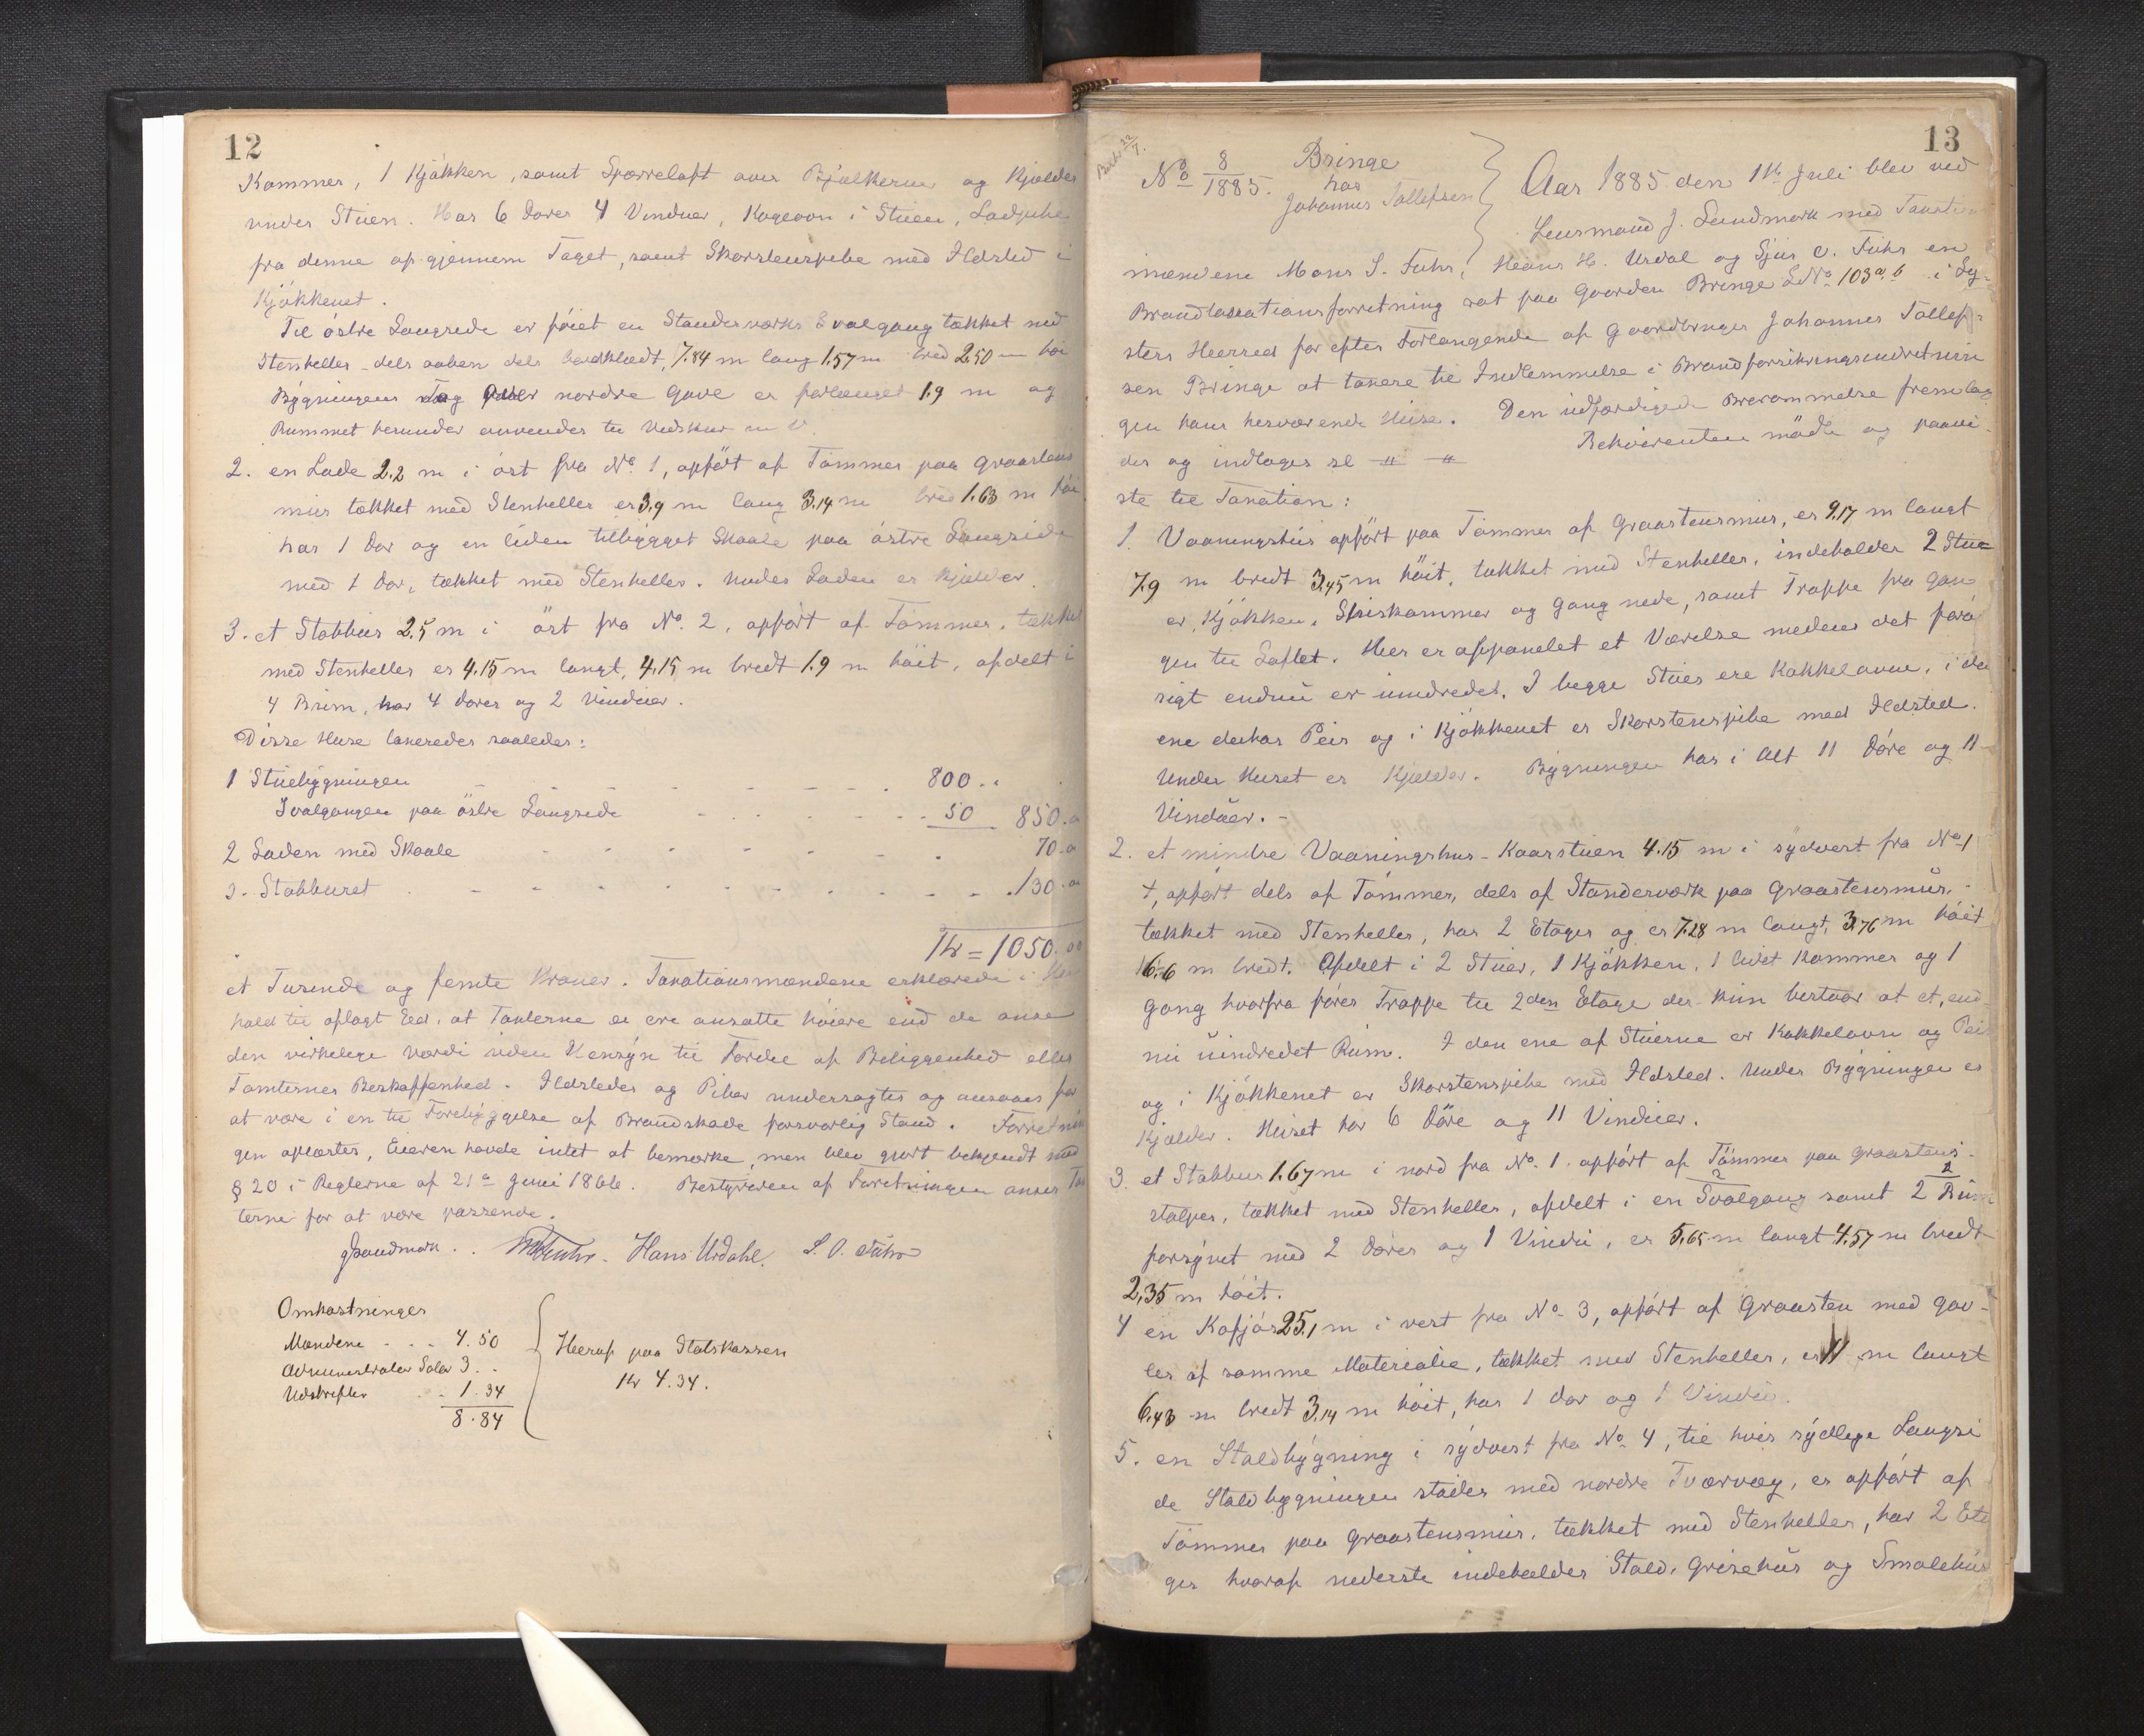 12
Kammer, 1 Kjøkken, samt Sperreloft over Bjælkerne og Kjælder
under Stuen. Har 6 Døre 4 Vinduer, Kogeovn i Stuen,
fra denne op gjennem Taget, samt Skorstenspibe med Ildsted i
Kjøkkenet.
Til østre Langside er føiet en Standerværks Svalgang tækket med
Stenheller dels aaben dels bordklædt, 7.84 m lang 1.57 m bred 2.50 m høi
Bygningens Tag over nordre Gavl er forlænget 1.9 m og
Rummet herunder anvendes til Vedskur m V.
2. en Lade 2.2 m i øst fra No 1, opført af Tømmer paa Graastens
mur tækket med Stenheller er 3.9 m lang 3.14 m bred 1.63 m høi
har 1 Dør og en liden tilbygget Skaale paa østre Langside
med 1 Dør, tækket med Stenheller. Under Laden er Kjælder.
3. et Stabbur 2.5 m i øst fra No. 2, opført af Tømmer, tækket
med Stenheller er 4.15 m langt, 4.15 m bredt 1.9 m høit, afdelt i
4 Rum, har 4 Døre og 2 Vinduer.
Disse Huse taxeredes saaledes:
1 Stuebygningen 800..
Svalgangen paa østre Langside 50 850.
2 Laden med Skaale 70.
3. Stabburet 130.
Kr = 1050.00
et Tusinde og femti Kroner. Taxationsmændene erklærede i Hen
hold til aflagt Ed, at Taxterne ei ere ansatte høiere end de anse
den virkelige Værdi uden Hensyn til Fordel af Beliggenhed eller
Tomternes Beskaffenhed. Ildsteder og Piber undersøgtes og ansaaes for
at være i en til Forebyggelse af Brandskade forsvarlig Stand. Forretnin
gen oplæstes, Eieren havde intet at bemærke, men blev gjort bekjendt med
§ 20 i Reglerne af 21de Juni 1866. Bestyreren af Forretningen anser Tax
terne for at være passende.
JSandmark . . Hans Urdahl. S. O. Fuhr
Omkostninger
Mændene . . . 4.50
Administrator Salær 3..
Udskrifter . . 1.34
8.84
Heraf paa Statskassen
Kr 4.34.
13
No 8/1885.
Bringe
hos
Johannes Tollefsen
Aar 1885 den 1ste Juli blev ved
Lensmand J. Sandmark med Taxations
mændene Mons S. Fuhr, Hans H. Urdal og Sjur O. Fuhr en
Brandtaxationsforretning sat paa Gaarden Bringe LNo 103 a, b i Ly-
sters Herred for efter Forlangende af Gaardbruger Johannes Tollef-
sen Bringe at taxere til Indlemmelse i Brandforsikringsindretnin
gen hans herværende Huse. Den udfærdigede Berammelse fremlag
des og indtages sl " " Rekvirenten mødte og paavi
ste til Taxation:
1. Vaaningshus opført paa Tømmer af Graastensmur, er 9.17 m langt
7.9 m bredt 3.45 m høit, tækket med Stenheller, indeholder 2 Stu-
er, Kjøkken, Spiskammer og Gang nede, samt Trappe fra Gan
gen til Loftet. Her er afpanelet et Værelse medens det førø
rigt endnu er uindredet. I begge Stuer ere Kakkelovne, i den
ene desuden Peis og i Kjøkkenet er Skorstenspibe med Ildsted.
Under Huset er Kjælder. Bygningen har i Alt 11 Døre og 11
Vinduer. -
2. et mindre Vaaningshus - Kaarstuen 4.15 m i sydvest fra No 1
, opført dels af Tømmer, dels af Standerværk paa Graastensmur,
tækket med Stenheller, har 2 Etager og er 7.28 m langt, 3.76 m høit
6.6 m bredt. Afdelt i 2 Stuer, 1 Kjøkken, 1 lidet Kammer og 1
Gang hvorfra fører Trappe til 2den Etage der kun bestaar at et, end-
nu uindredet Rum. I den ene af Stuerne er Kakkelovn og Peis
og i Kjøkkenet er Skorstenspibe med Ildsted. Under Bygningen er
Kjælder. Huset har 6 Døre og 11 Vinduer.
3. et Stabbur 1.67 m i nord fra No. 1. opført af Tømmer paa Graastens-
stolper, tækket med Stenheller, afdelt i en Svalgang samt 2 Rum
forsynet med 2 Døre og 1 Vindu, er 5.65 m langt 4.57 m bredt
2.35 m høit.
4 en Kofjøs 25.1 m i vest fra No 3, opført af Graasten med Gav-
ler af samme Materialie, tækket med Stenheller, er 11 m langt
6.43 m bredt 3.14 m høit, har 1 Dør og 1 Vindu.
5. en Staldbygning i sydvest fra No 4, til hvis sydlige Langsi
de Staldbygningen støder med nordre Tværvæg, er opført af
Tømmer paa Graastensmur, tækket med Stenheller, har 2 Eta
ger hvoraf nederste indeholder Stald, Grisehus og Smalehus